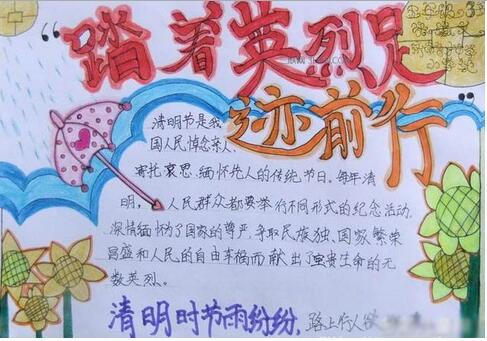 “踏着英烈足
迹前行”
清明节是我
国人民悼念亲人、
寄托哀思、缅怀先人的传统节日。每年清
明,人民群众都要举行不同形式的纪念活动,
深情缅怀为了国家的尊严、争取民族独、国家繁荣
昌盛和人民的自由幸福而献出了宝贵生命的无
数英烈。
清明时节雨纷纷,路上行人欲